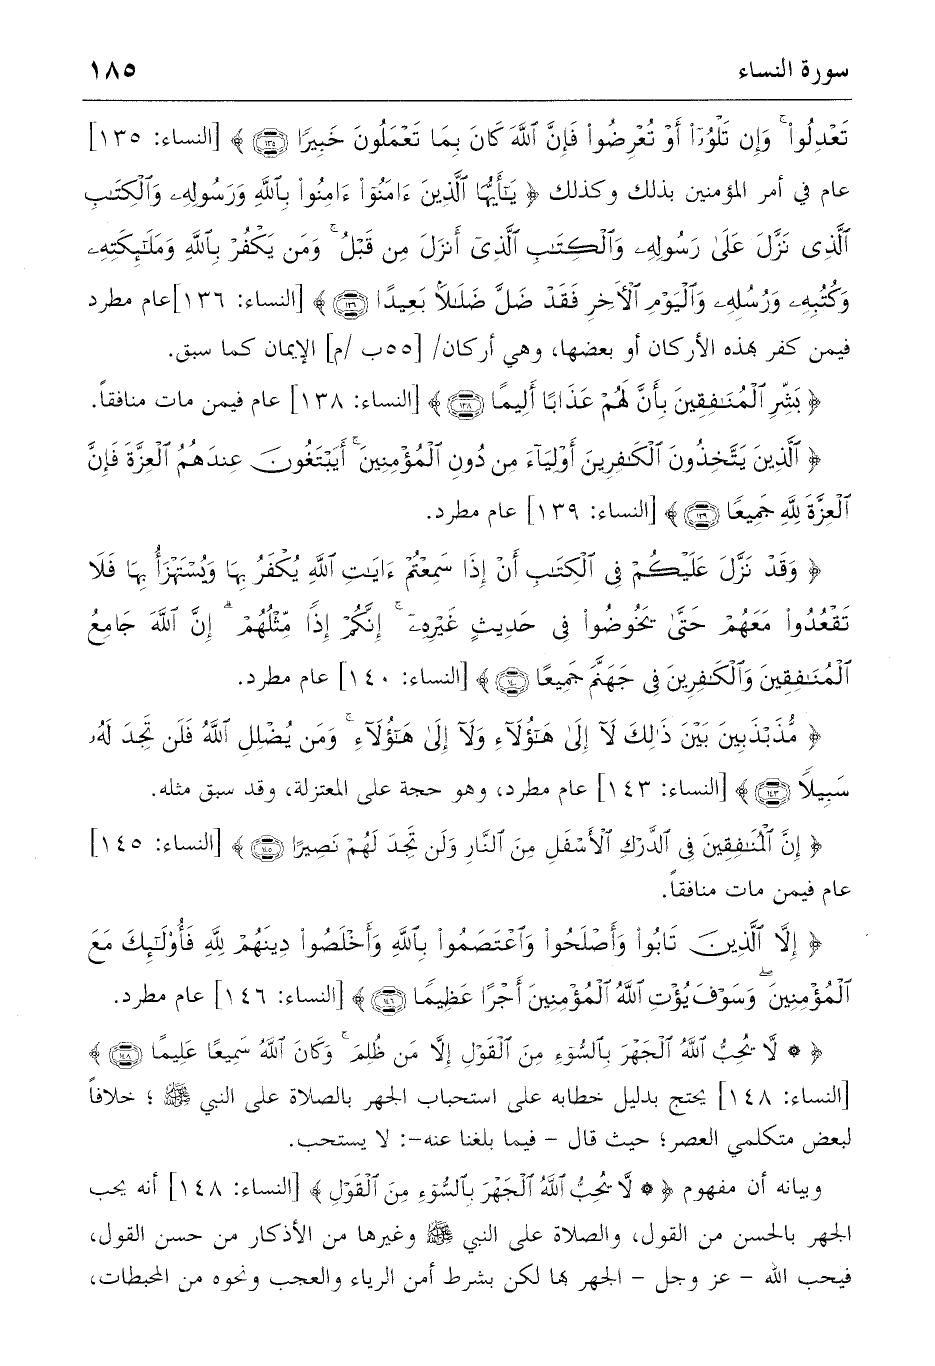 سورة النساء ١٨٥
تَعْدِلُوا۟ ۚ وَإِن تَلْوُۥٓا۟ أَوْ تُعْرِضُوا۟ فَإِنَّ ٱللَّهَ كَانَ بِمَا تَعْمَلُونَ خَبِيرًا ١٣٥ ﴾ [النساء: ١٣٥]
عام في أمر المؤمنين بذلك وكذلك ﴿ يَٰٓأَيُّهَا ٱلَّذِينَ ءَامَنُوٓا۟ ءَامِنُوا۟ بِٱللَّهِ وَرَسُولِهِۦ وَٱلْكِتَٰبِ
ٱلَّذِى نَزَّلَ عَلَىٰ رَسُولِهِۦ وَٱلْكِتَٰبِ ٱلَّذِىٓ أَنزَلَ مِن قَبْلُ ۚ وَمَن يَكْفُرْ بِٱللَّهِ وَمَلَٰٓئِكَتِهِۦ
وَكُتُبِهِۦ وَرُسُلِهِۦ وَٱلْيَوْمِ ٱلْءَاخِرِ فَقَدْ ضَلَّ ضَلَٰلًۢا بَعِيدًا ١٣٦ ﴾ [النساء: ١٣٦]عام مطرد
فيمن كفر بهذه الأركان أو بعضها، وهي أركان/ [٥٥ب /م] الإيمان كما سبق.
﴿ بَشِّرِ ٱلْمُنَٰفِقِينَ بِأَنَّ لَهُمْ عَذَابًا أَلِيمًا ١٣٨ ﴾ [النساء: ١٣٨] عام فيمن مات منافقاً.
﴿ ٱلَّذِينَ يَتَّخِذُونَ ٱلْكَٰفِرِينَ أَوْلِيَآءَ مِن دُونِ ٱلْمُؤْمِنِينَ ۚ أَيَبْتَغُونَ عِندَهُمُ ٱلْعِزَّةَ فَإِنَّ
ٱلْعِزَّةَ لِلَّهِ جَمِيعًا ١٣٩ ﴾ [النساء: ١٣٩] عام مطرد.
﴿ وَقَدْ نَزَّلَ عَلَيْكُمْ فِى ٱلْكِتَٰبِ أَنْ إِذَا سَمِعْتُمْ ءَايَٰتِ ٱللَّهِ يُكْفَرُ بِهَا وَيُسْتَهْزَأُ بِهَا فَلَا
تَقْعُدُوا۟ مَعَهُمْ حَتَّىٰ يَخُوضُوا۟ فِى حَدِيثٍ غَيْرِهِۦٓ ۚ إِنَّكُمْ إِذًا مِّثْلُهُمْ ۗ إِنَّ ٱللَّهَ جَامِعُ
ٱلْمُنَٰفِقِينَ وَٱلْكَٰفِرِينَ فِى جَهَنَّمَ جَمِيعًا ١٤٠ ﴾ [النساء: ١٤٠] عام مطرد.
﴿ مُّذَبْذَبِينَ بَيْنَ ذَٰلِكَ لَآ إِلَىٰ هَٰٓؤُلَآءِ وَلَآ إِلَىٰ هَٰٓؤُلَآءِ ۚ وَمَن يُضْلِلِ ٱللَّهُ فَلَن تَجِدَ لَهُۥ
سَبِيلًا ١٤٣ ﴾ [النساء: ١٤٣] عام مطرد، وهو حجة على المعتزلة، وقد سبق مثله.
﴿ إِنَّ ٱلْمُنَٰفِقِينَ فِى ٱلدَّرْكِ ٱلْأَسْفَلِ مِنَ ٱلنَّارِ وَلَن تَجِدَ لَهُمْ نَصِيرًا ١٤٥ ﴾ [النساء: ١٤٥]
عام فيمن مات منافقاً.
﴿ إِلَّا ٱلَّذِينَ تَابُوا۟ وَأَصْلَحُوا۟ وَٱعْتَصَمُوا۟ بِٱللَّهِ وَأَخْلَصُوا۟ دِينَهُمْ لِلَّهِ فَأُو۟لَٰٓئِكَ مَعَ
ٱلْمُؤْمِنِينَ ۖ وَسَوْفَ يُؤْتِ ٱللَّهُ ٱلْمُؤْمِنِينَ أَجْرًا عَظِيمًا ١٤٦ ﴾ [النساء: ١٤٦] عام مطرد.
﴿ * لَّا يُحِبُّ ٱللَّهُ ٱلْجَهْرَ بِٱلسُّوٓءِ مِنَ ٱلْقَوْلِ إِلَّا مَن ظُلِمَ ۚ وَكَانَ ٱللَّهُ سَمِيعًا عَلِيمًا ١٤٨ ﴾
[النساء: ١٤٨] يحتج بدليل خطابه على استحباب الجهر بالصلاة على النبي ﷺ ؛ خلافاً
لبعض متكلمي العصر؛ حيث قال – فيما بلغنا عنه–: لا يستحب.
وبيانه أن مفهوم ﴿ * لَّا يُحِبُّ ٱللَّهُ ٱلْجَهْرَ بِٱلسُّوٓءِ مِنَ ٱلْقَوْلِ ﴾ [النساء: ١٤٨] أنه يحب
الجهر بالحسن من القول، والصلاة على النبي ﷺ وغيرها من الأذكار من حسن القول،
فيحب الله – عز وجل – الجهر بها لكن بشرط أمن الرياء والعجب ونحوه من المحبطات،